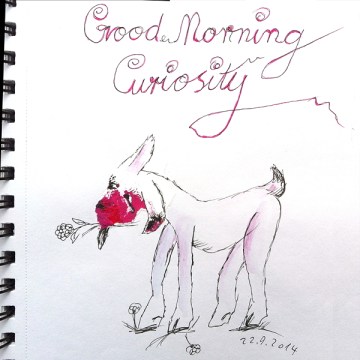 Gooder Morning
Curiosity
22.9.2014